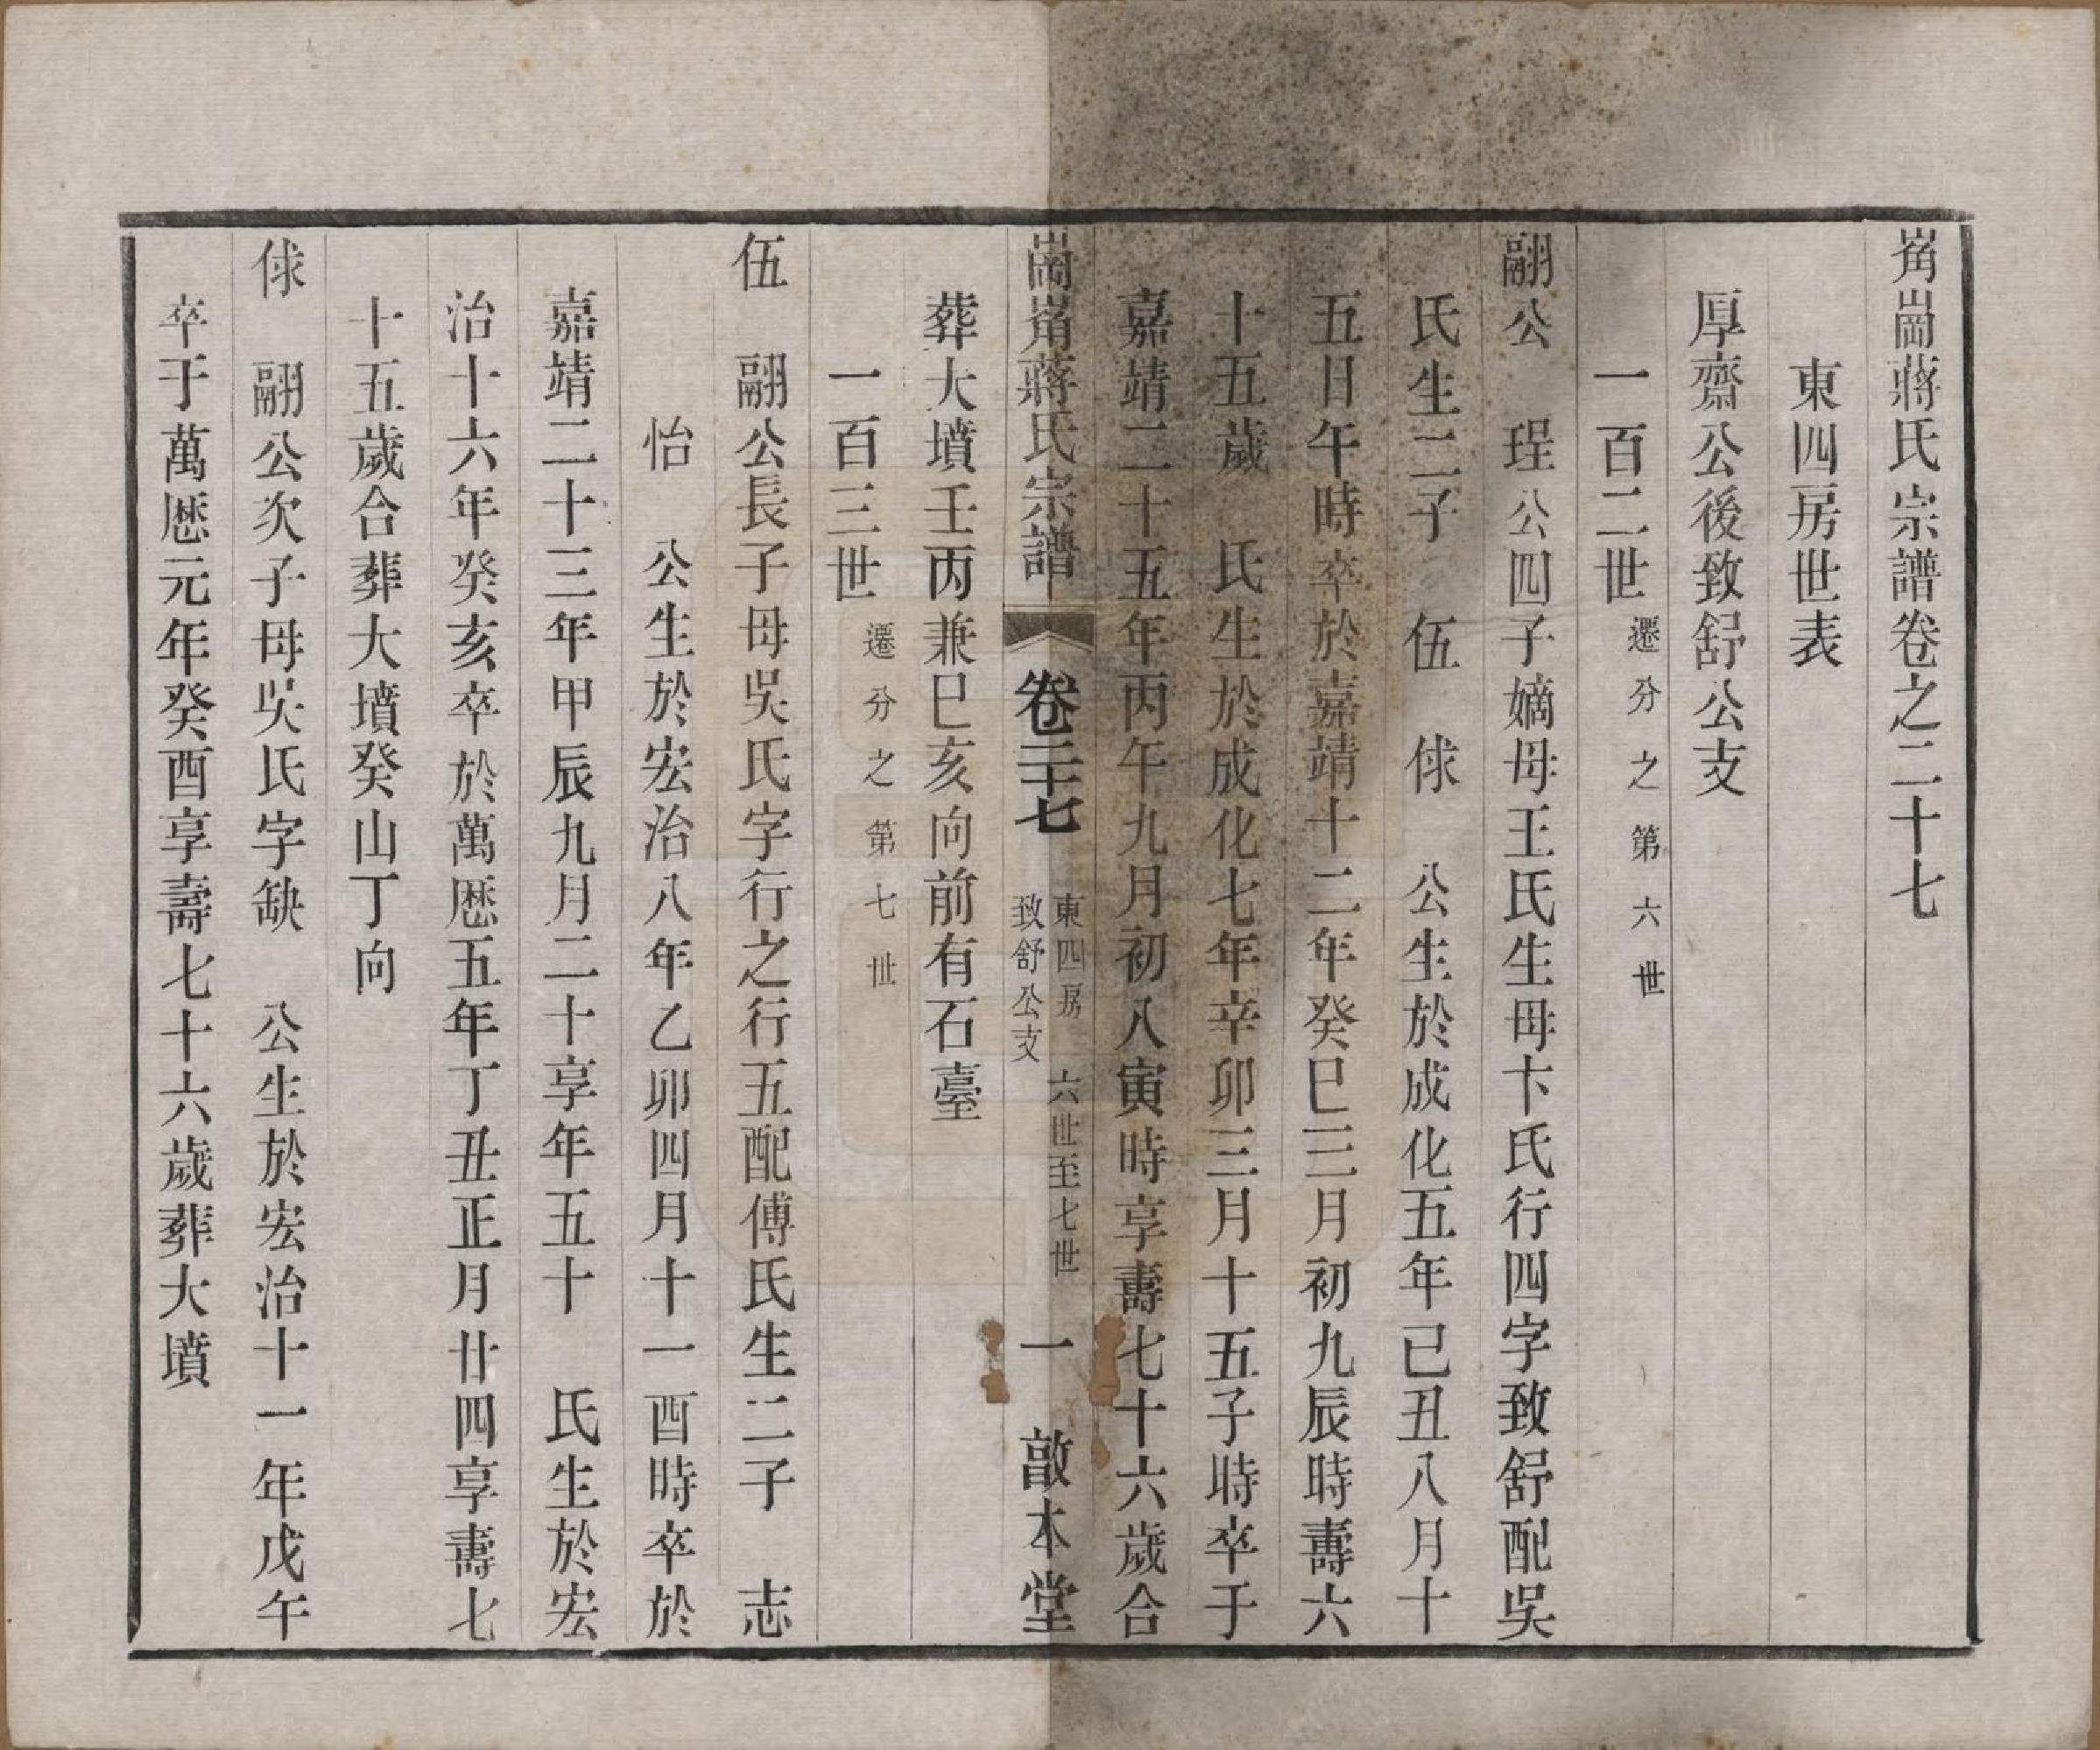 嵴崗蔣氏宗譜卷之二十七
東四房世表
厚齋公後致舒公支
一百二世遷分之第六世
翮公　珵公四子嫡母王氏生母卞氏行四字致舒配吳
氏生二子　伍　俅　公生於成化五年己丑八月十
五日午時卒於嘉靖十二年癸巳三月初九辰時壽六
十五歲　氏生於成化七年辛卯三月十五子時卒于
嘉靖二十五年丙午九月初八寅時享壽七十六歲合
崗嵴蔣氏宗譜　卷二十七　東四房致舒公支　六世至七世　一　敦本堂
葬大墳壬丙兼巳亥向前有石臺
一百三世遷分之第七世
伍　翮公長子母吳氏字行之行五配傅氏生二子　志
怡　公生於宏治八年乙卯四月十一酉時卒於
嘉靖二十三年甲辰九月二十享年五十　氏生於宏
治十六年癸亥卒於萬歷五年丁丑正月廿四享壽七
十五歲合葬大墳癸山丁向
俅　翮公次子母吳氏字缺　公生於宏治十一年戊午
卒于萬歷元年癸酉享壽七十六歲葬大墳